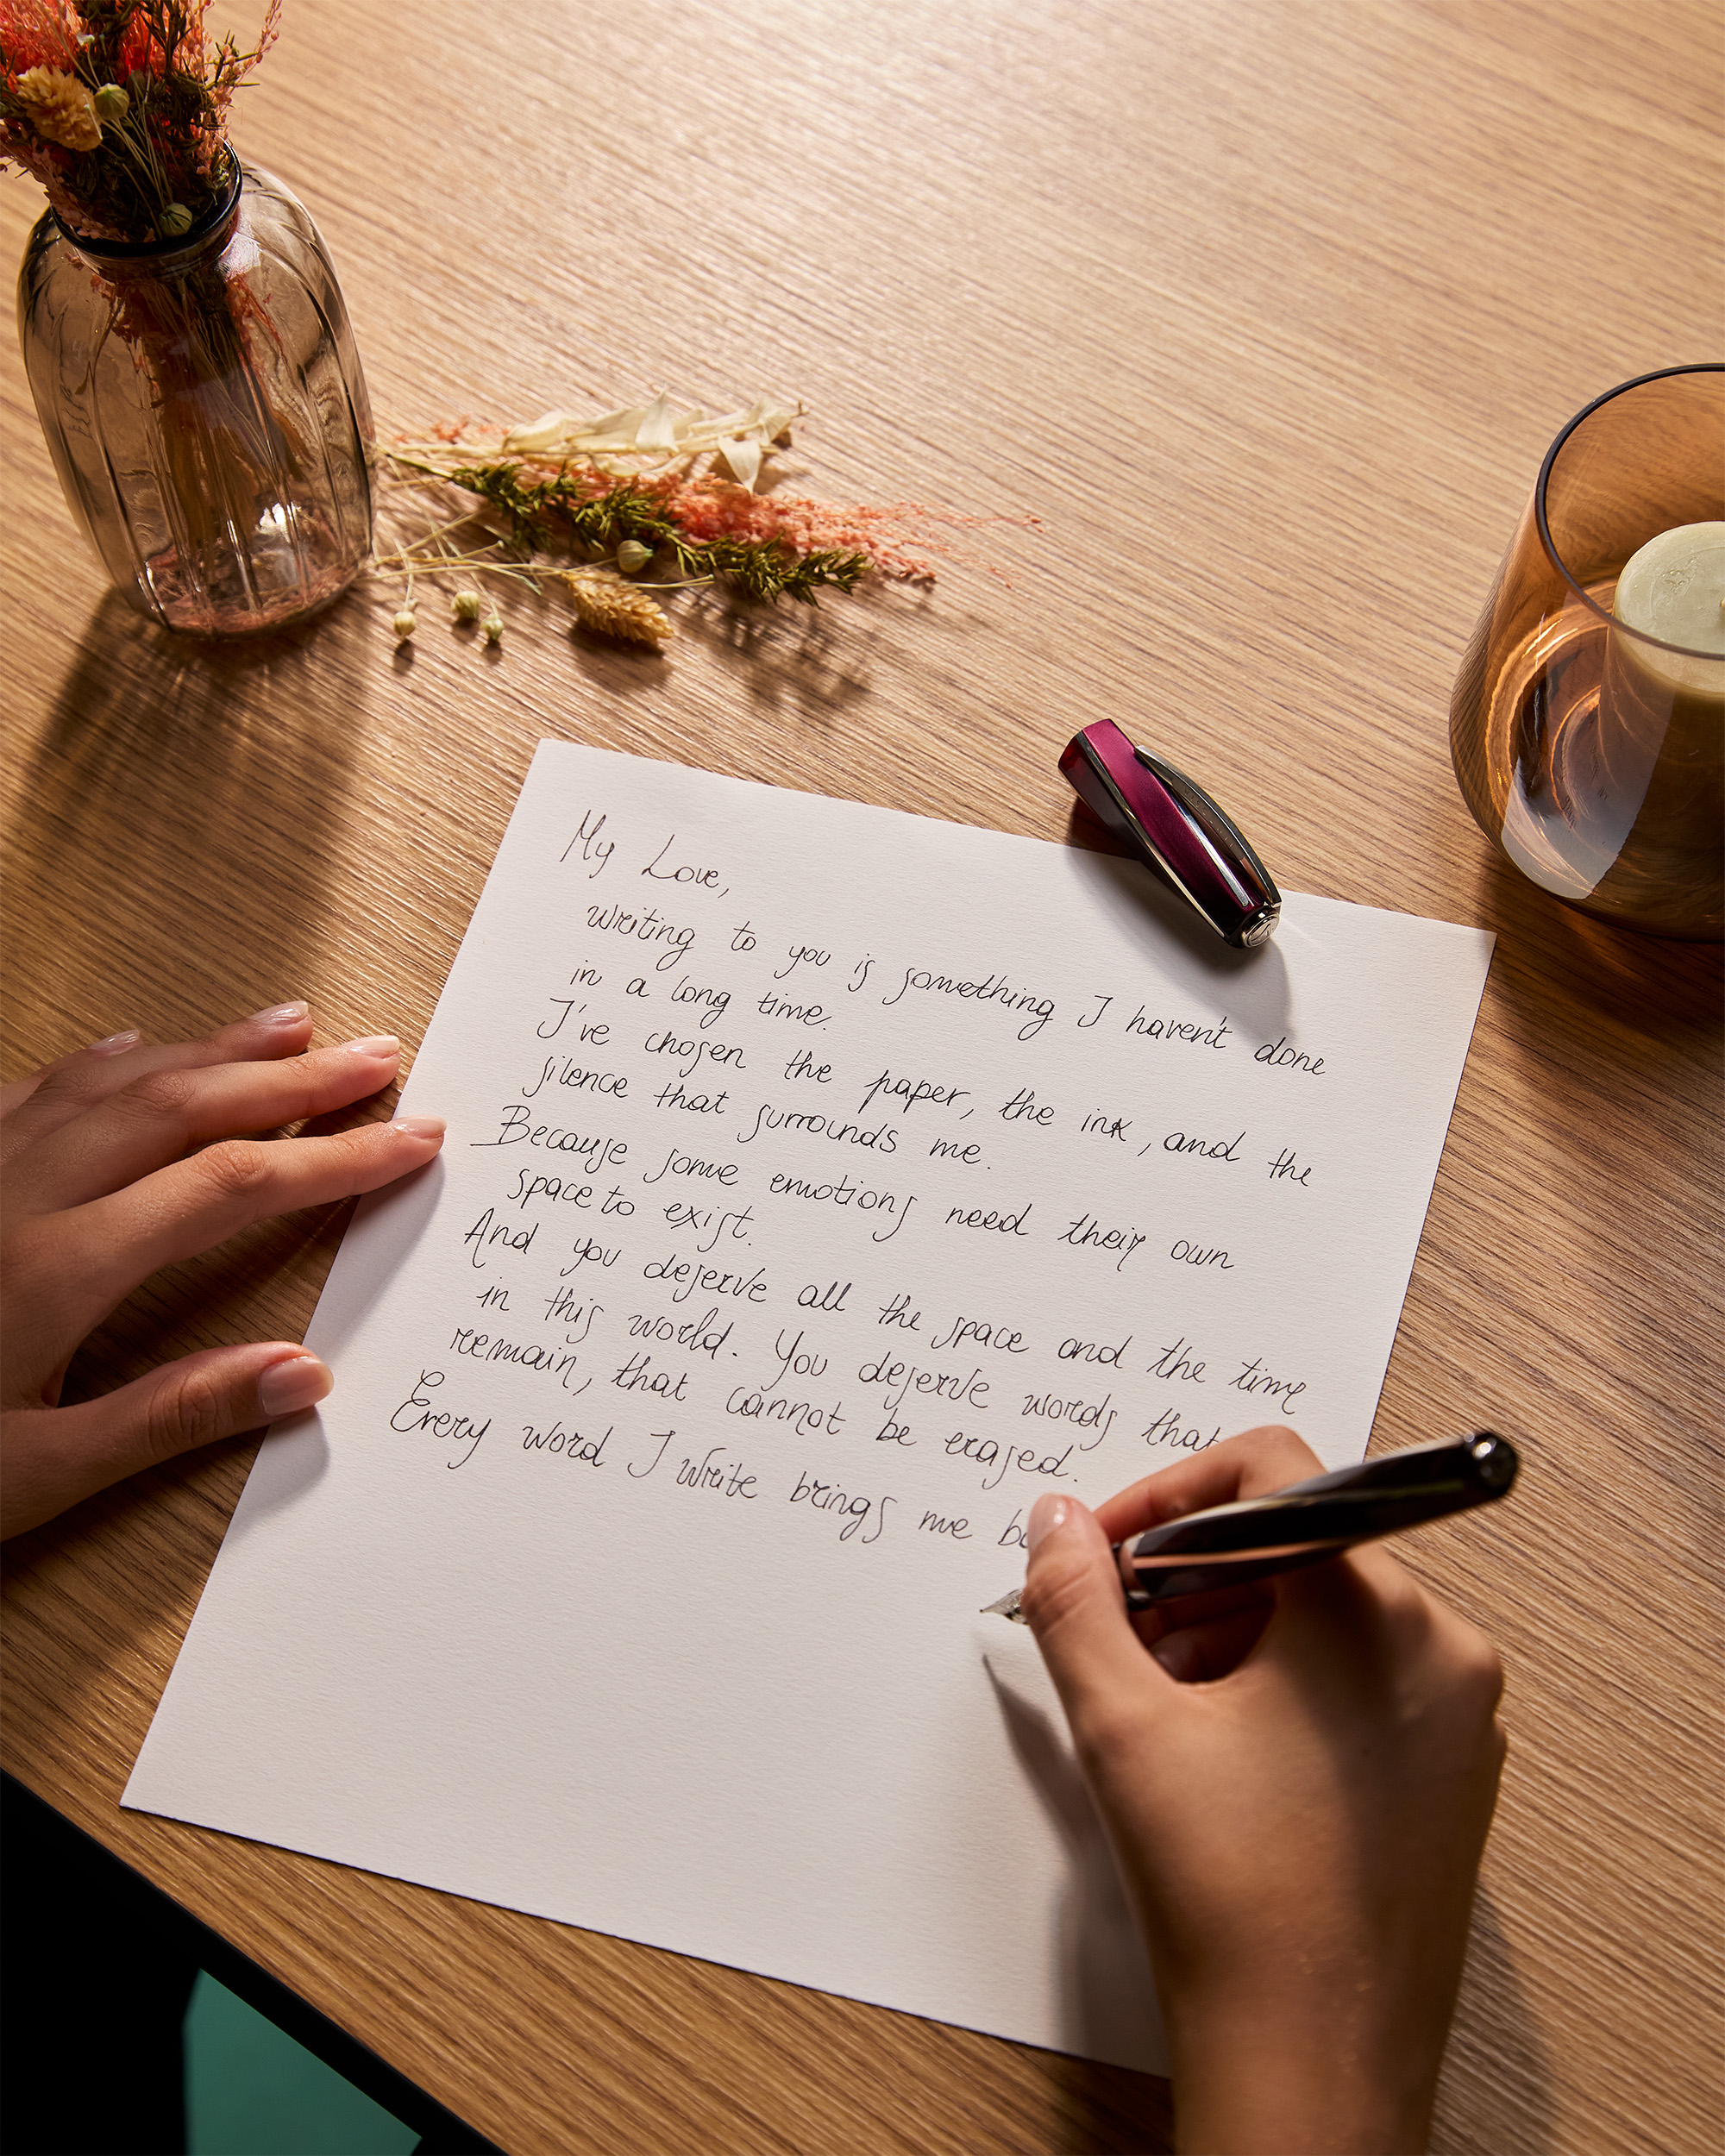 My Love,
writing to you is something I haven't done
in a long time.
I've chosen the paper, the ink, and the
silence that surrounds me.
Because some emotions need their own
space to exist.
And you deserve all the space and the time
in this world. You deserve words that
remain, that cannot be erased.
Every word I write brings me